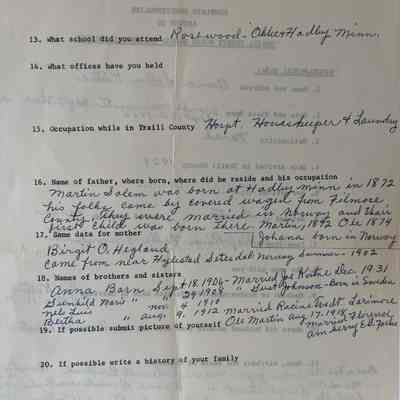 13. What school did you attend Rosewood - Oklee + Hadley Minn.
14. What offices have you held
15. Occupation while in Traill County Hospt. Housekeeper & Laundry
16. Name of father, where born, where did he reside and his occupation
Martin Salem was born at Hadley Minn in 1872
his folks came by covered wagon from Filmore
County. They were married in Norway and their
first child was born there. Martin, 1872 Ole 1874
17. Same data for mother Johana born in Norway
Birgit O. Hegland
came from near Hylestad Setesdal Norway Sunivar - 1902
18. Names of brothers and sisters
Anna Born Sept 18, 1906 - Married Joe Kathe Dec 19.31
Gunhild Marie " " 29 1908 " Gust Johnson - Born in Sweden
Nels Luis " nov. 4 1910
Bertha " aug. 9, 1912 Married Racine Larimore
19. If possible submit picture of yourself Ole Martin Aug. 17, 1918 married Florence
20. If possible write a history of your family